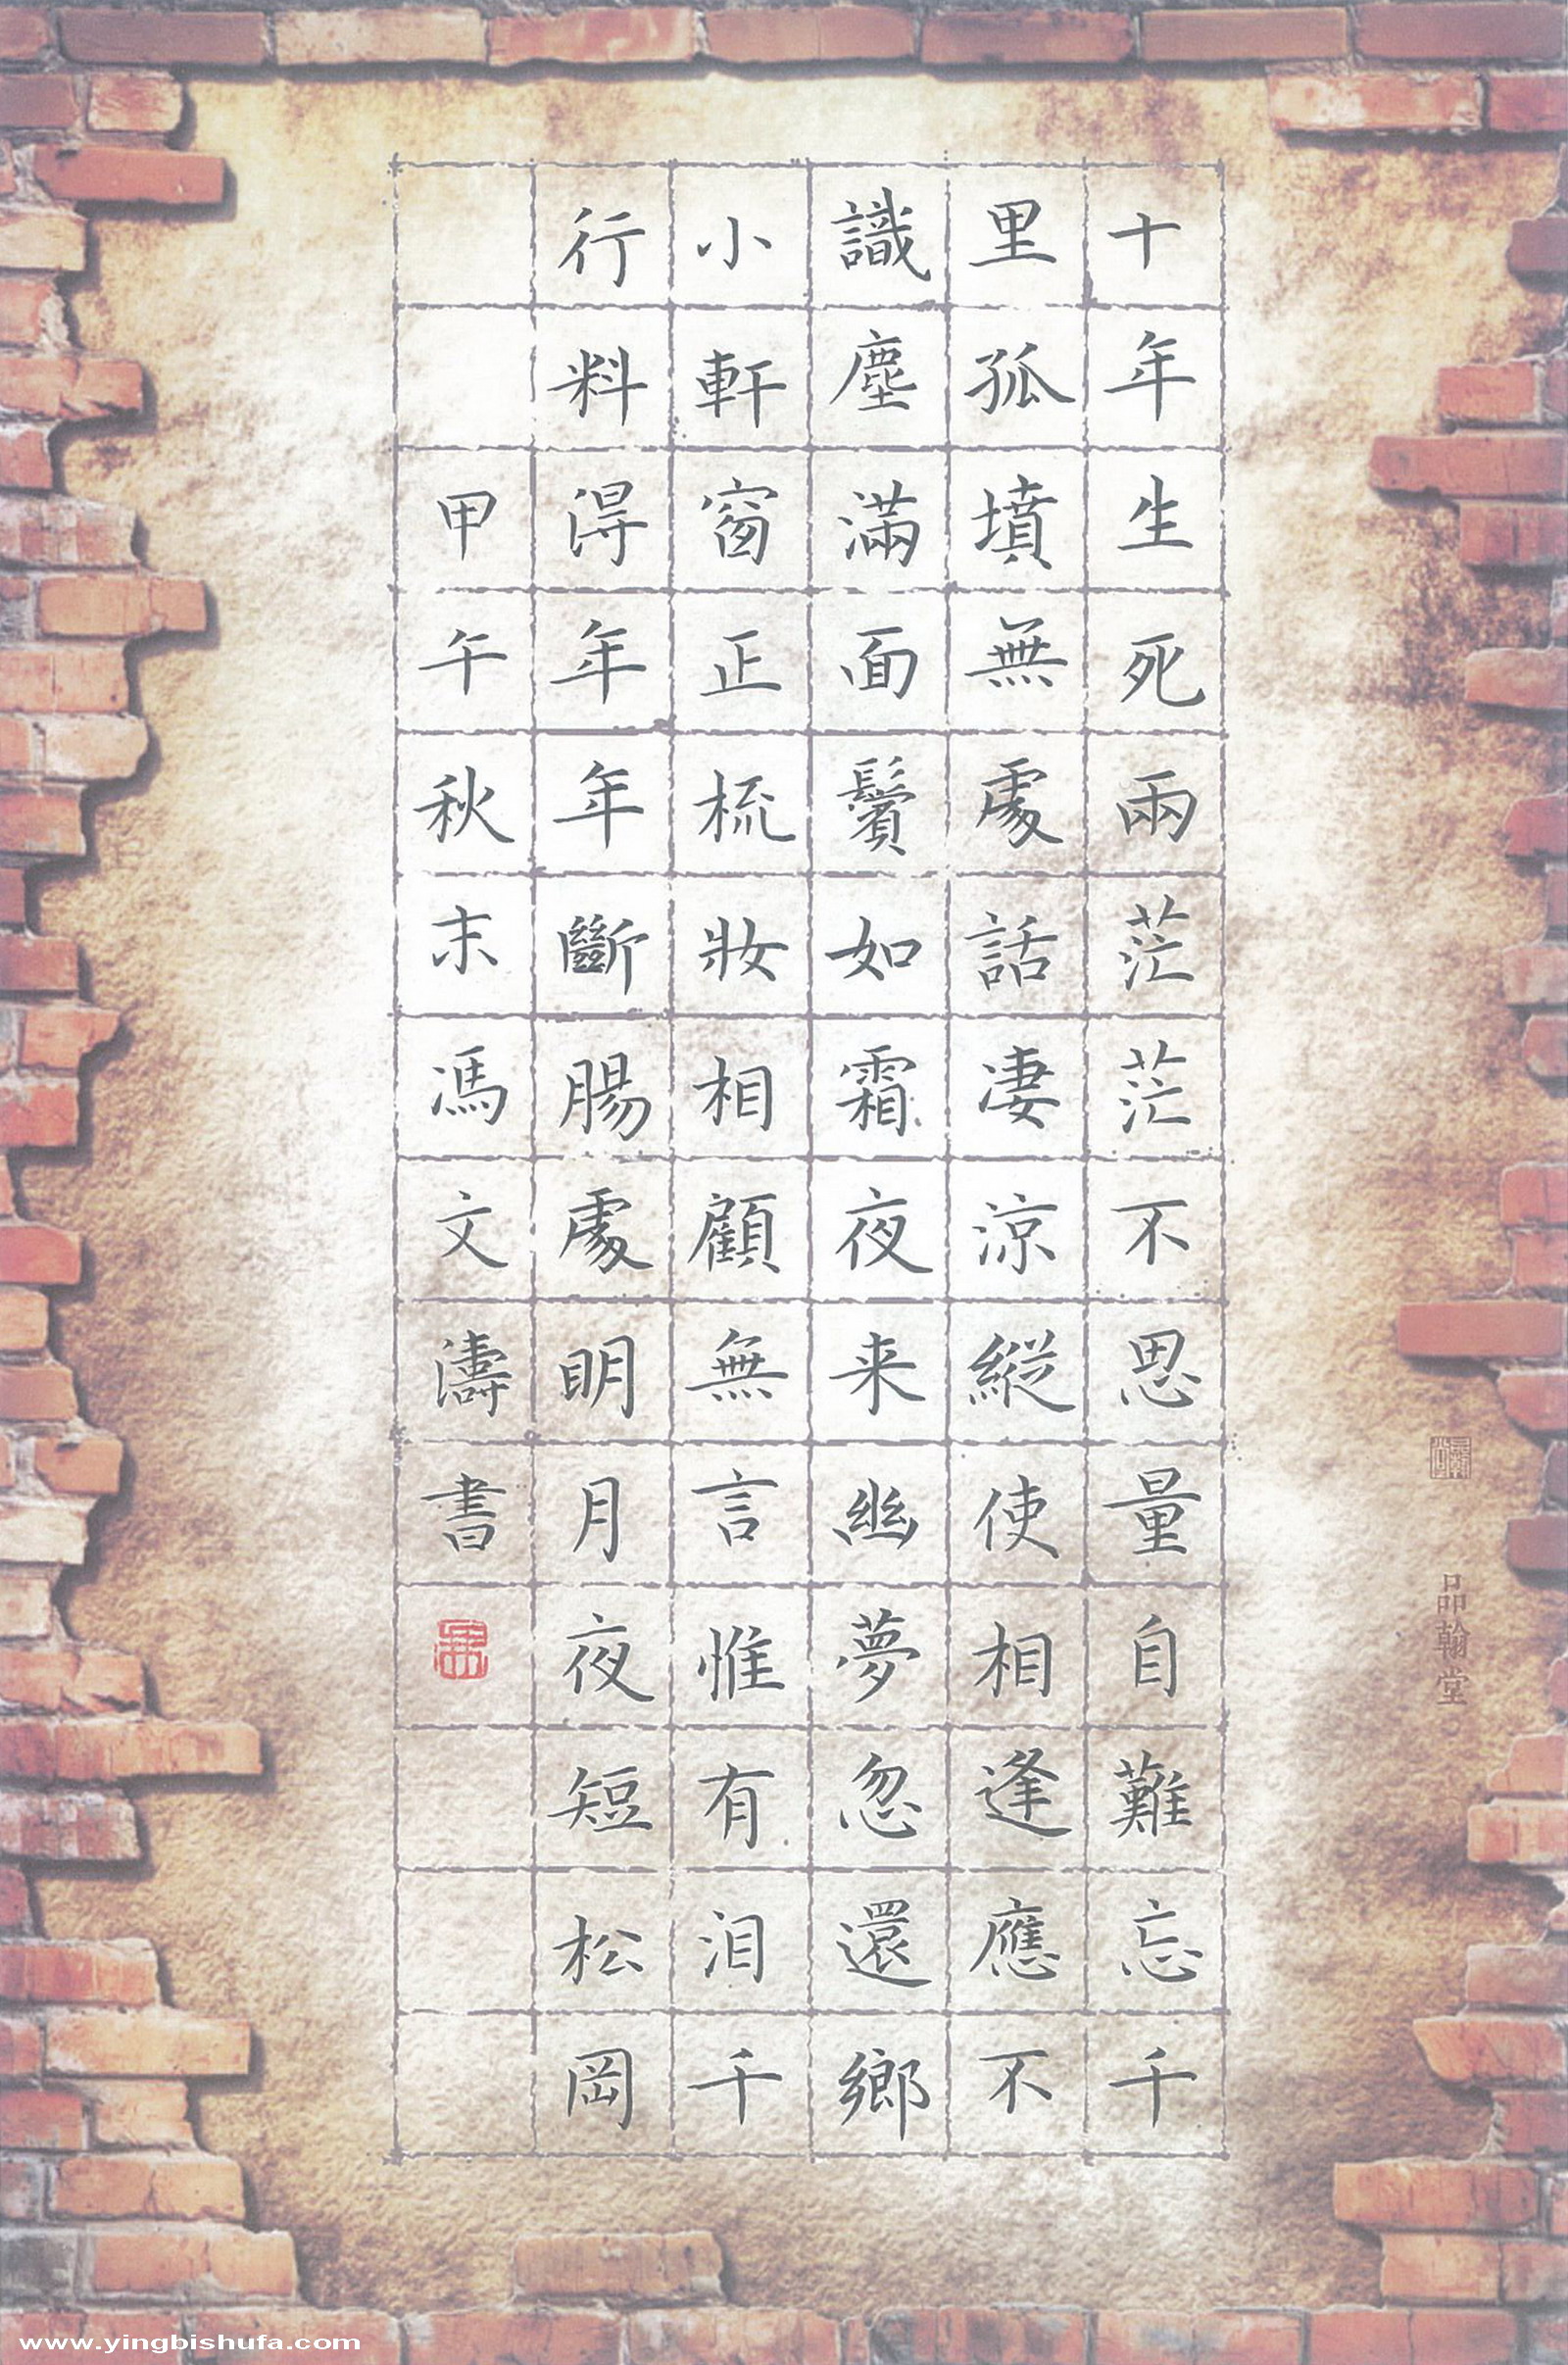 十年生死兩茫茫不思量自難忘千
里孤墳無處話淒涼縱使相逢應不
識塵滿面鬢如霜夜来幽夢忽還鄉
小軒窗正梳妝相顧無言惟有泪千
行料得年年斷腸處明月夜短松岡
甲午秋末馮文濤書
品翰堂
www.yingbishufa.com